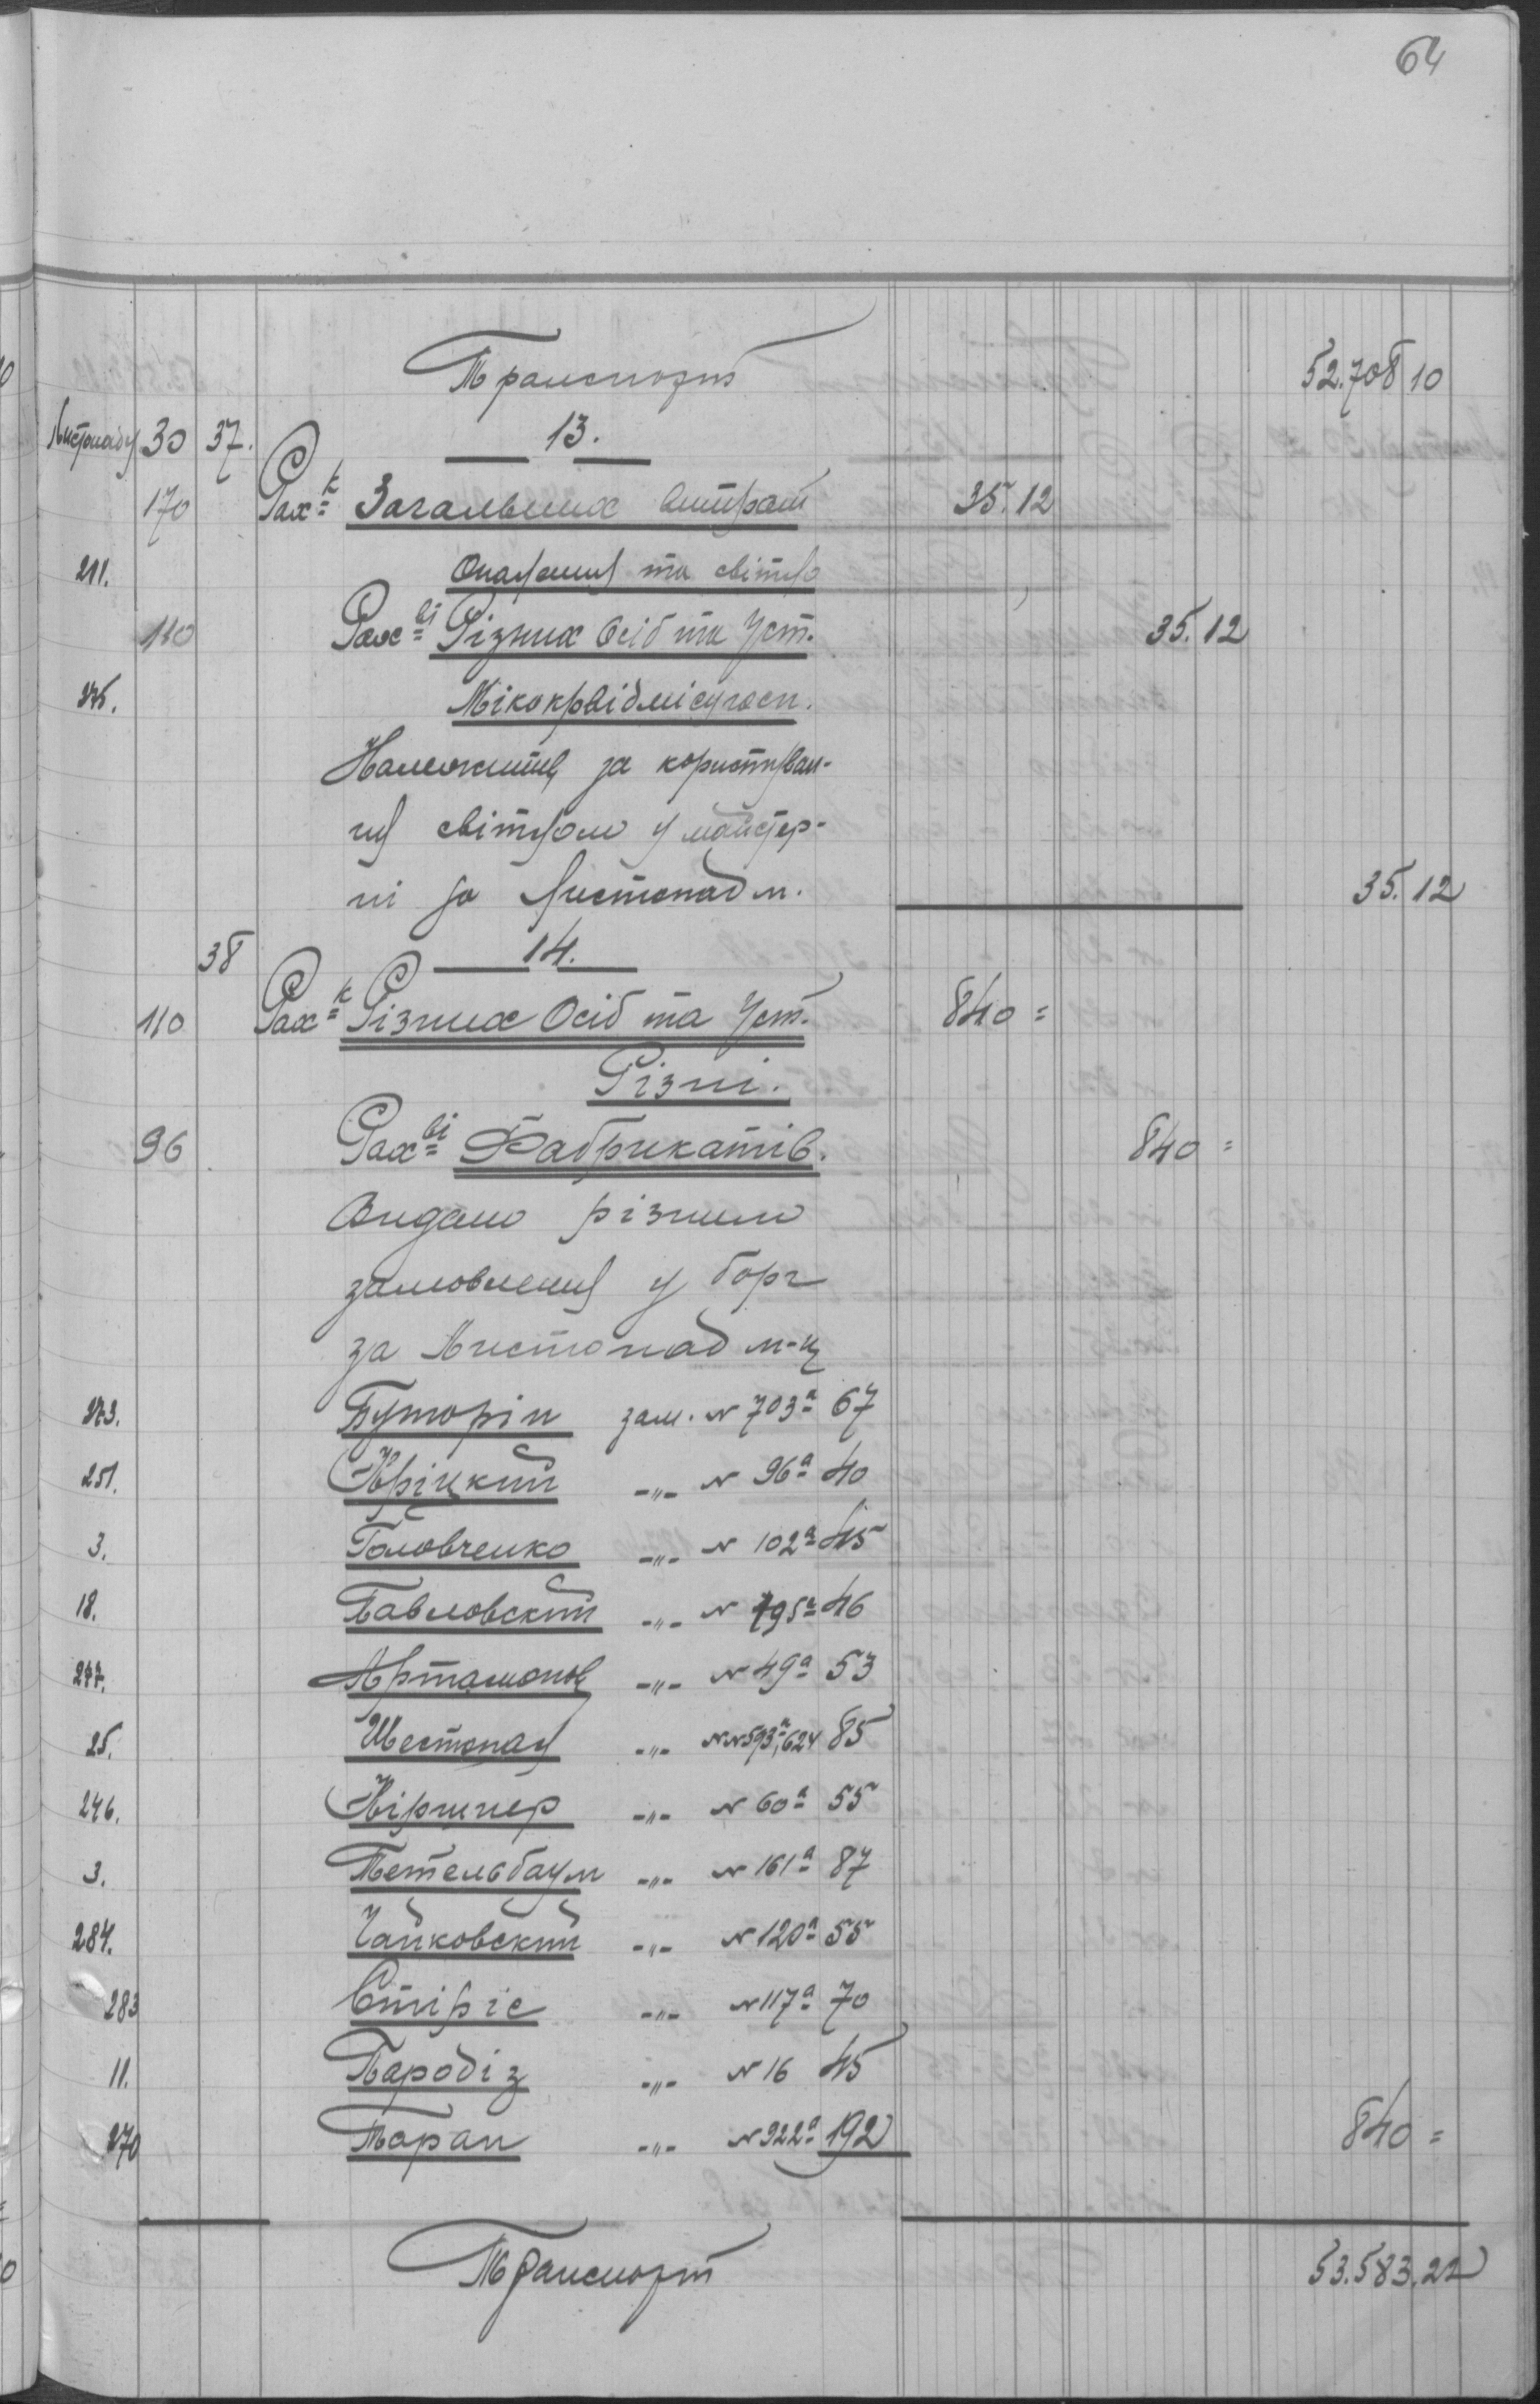 64
Транспорт 52.708 10
Листопаду 30 37. 13.
170 Рах-к Загальних витрат 35.12
211. Опалення та світло
110 Рах-ві Різних Осіб та Уст. 35.12
275.
Належить за користуван-
ня світлом у майстер-
ні за Листопад м. 35.12
38 14.
110 Рах-к Різних Осіб та Уст. 840 =
Різні.
96 Рах-ві Фабрикатів. 840 =
Видано різним
замовлення у борг
за Листопад м-ц
273. Буторін зам. № 703а 67
251. Кріцкий -"- № 96а 40
3. Головченко -"- № 102а 45
18. Павловский -"- № 795а 46
277. Артамонов -"- № 49а 53
25. Шестопал -"- №№ 593а, 624 85
246. Кіршнер -"- № 60а 55
3. Тетельбаум -"- № 161а 87
284. Чайковский -"- № 120а 55
283 Стіріс -"- № 117а 70
11. Пародіз -"- № 16 45
270 Торан -"- № 922а 192 840 =
Транспорт 53.583.22